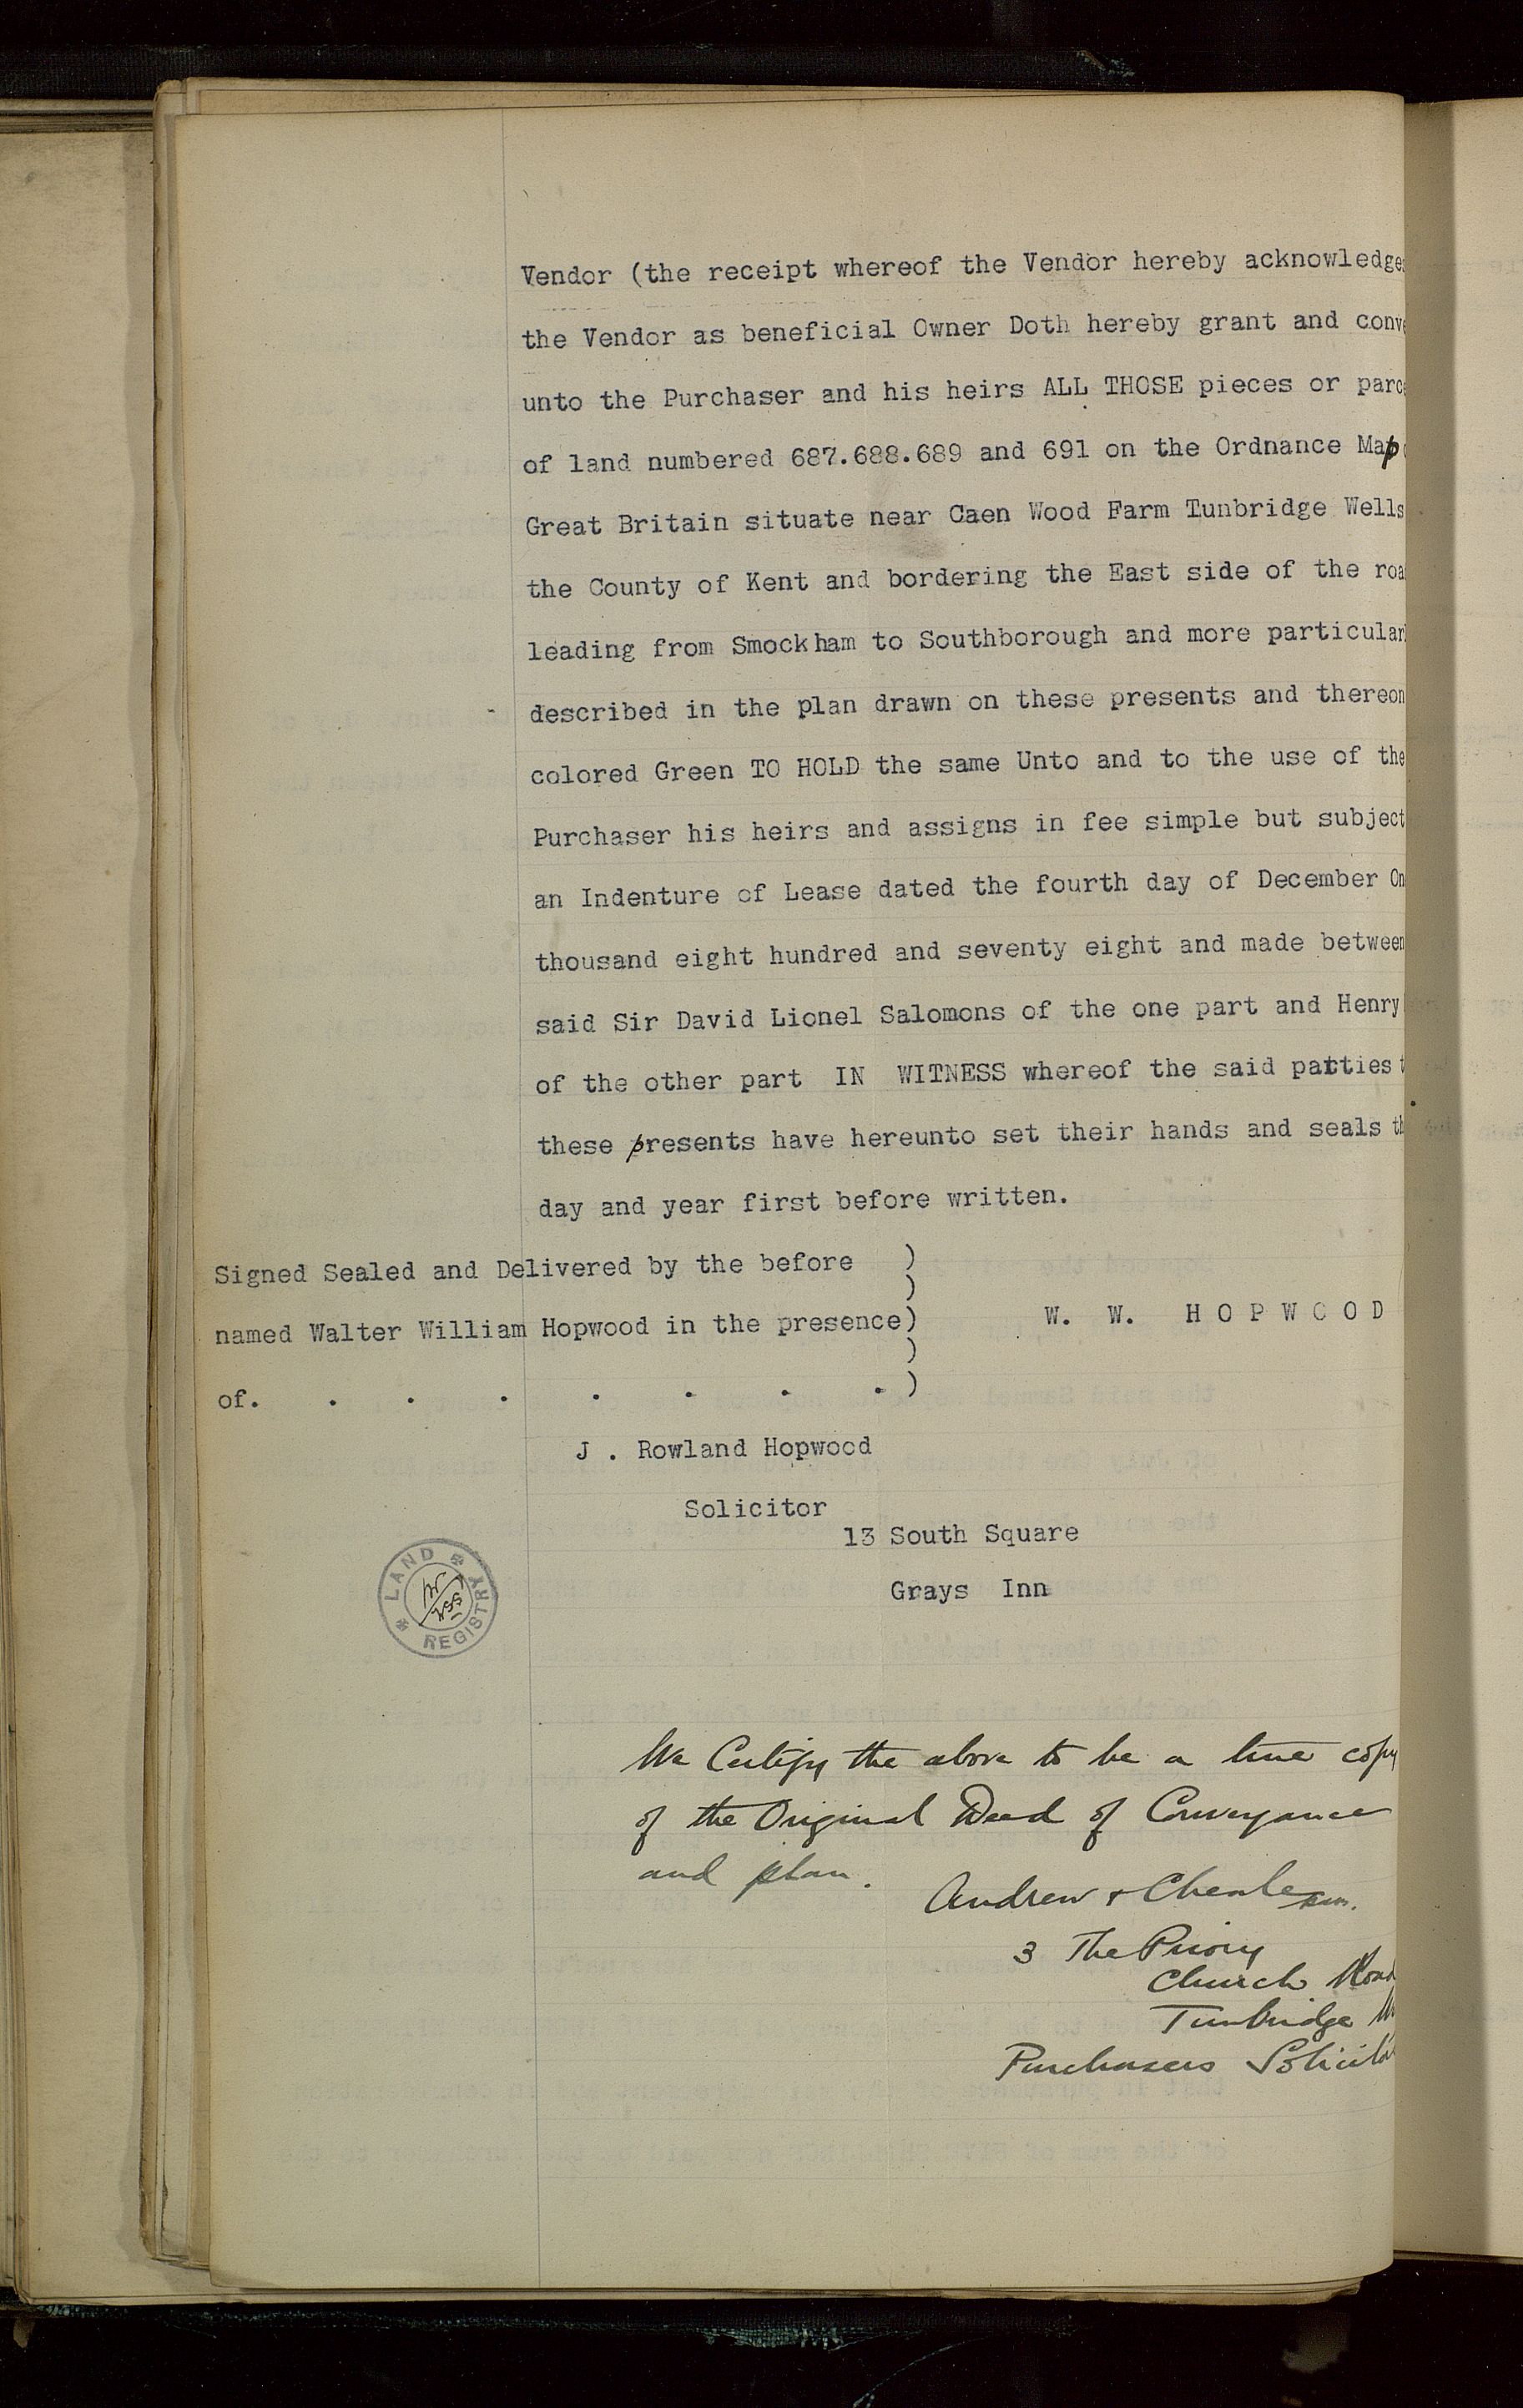 Vendor (the receipt whereof the Vendor hereby acknowledge
the Vendor as beneficial Owner Doth hereby grant and conv
unto the Purchaser and his heirs ALL THOSE pieces or parc
of land numbered 687.688.689 and 691 on the Ordnance Map
Great Britain situate near Caen Wood Farm Tunbridge Wells
the County of Kent and bordering the East side of the roa
leading from Smockham to Southborough and more particular
described in the plan drawn on these presents and thereon
colored Green TO HOLD the same Unto and to the use of the
Purchaser his heirs and assigns in fee simple but subject
an Indenture of Lease dated the fourth day of December On
thousand eight hundred and seventy eight and made between
said Sir David Lionel Salomons of the one part and Henry
of the other part IN WITNESS whereof the said patties t
these presents have hereunto set their hands and seals th
day and year first before written.
Signed Sealed and Delivered by the before )
)
named Walter William Hopwood in the presence) W. W. HOPWOOD
)
of. . . . . . . . )
J . Rowland Hopwood
Solicitor
13 South Square
Grays Inn
LAND REGISTRY
We Certify the above to be a true copy
of the Original Deed of Conveyance
and plan.
Andrew + Cheale
3 The Priory
Church Road
Tunbridge
Purchasers Solicitor